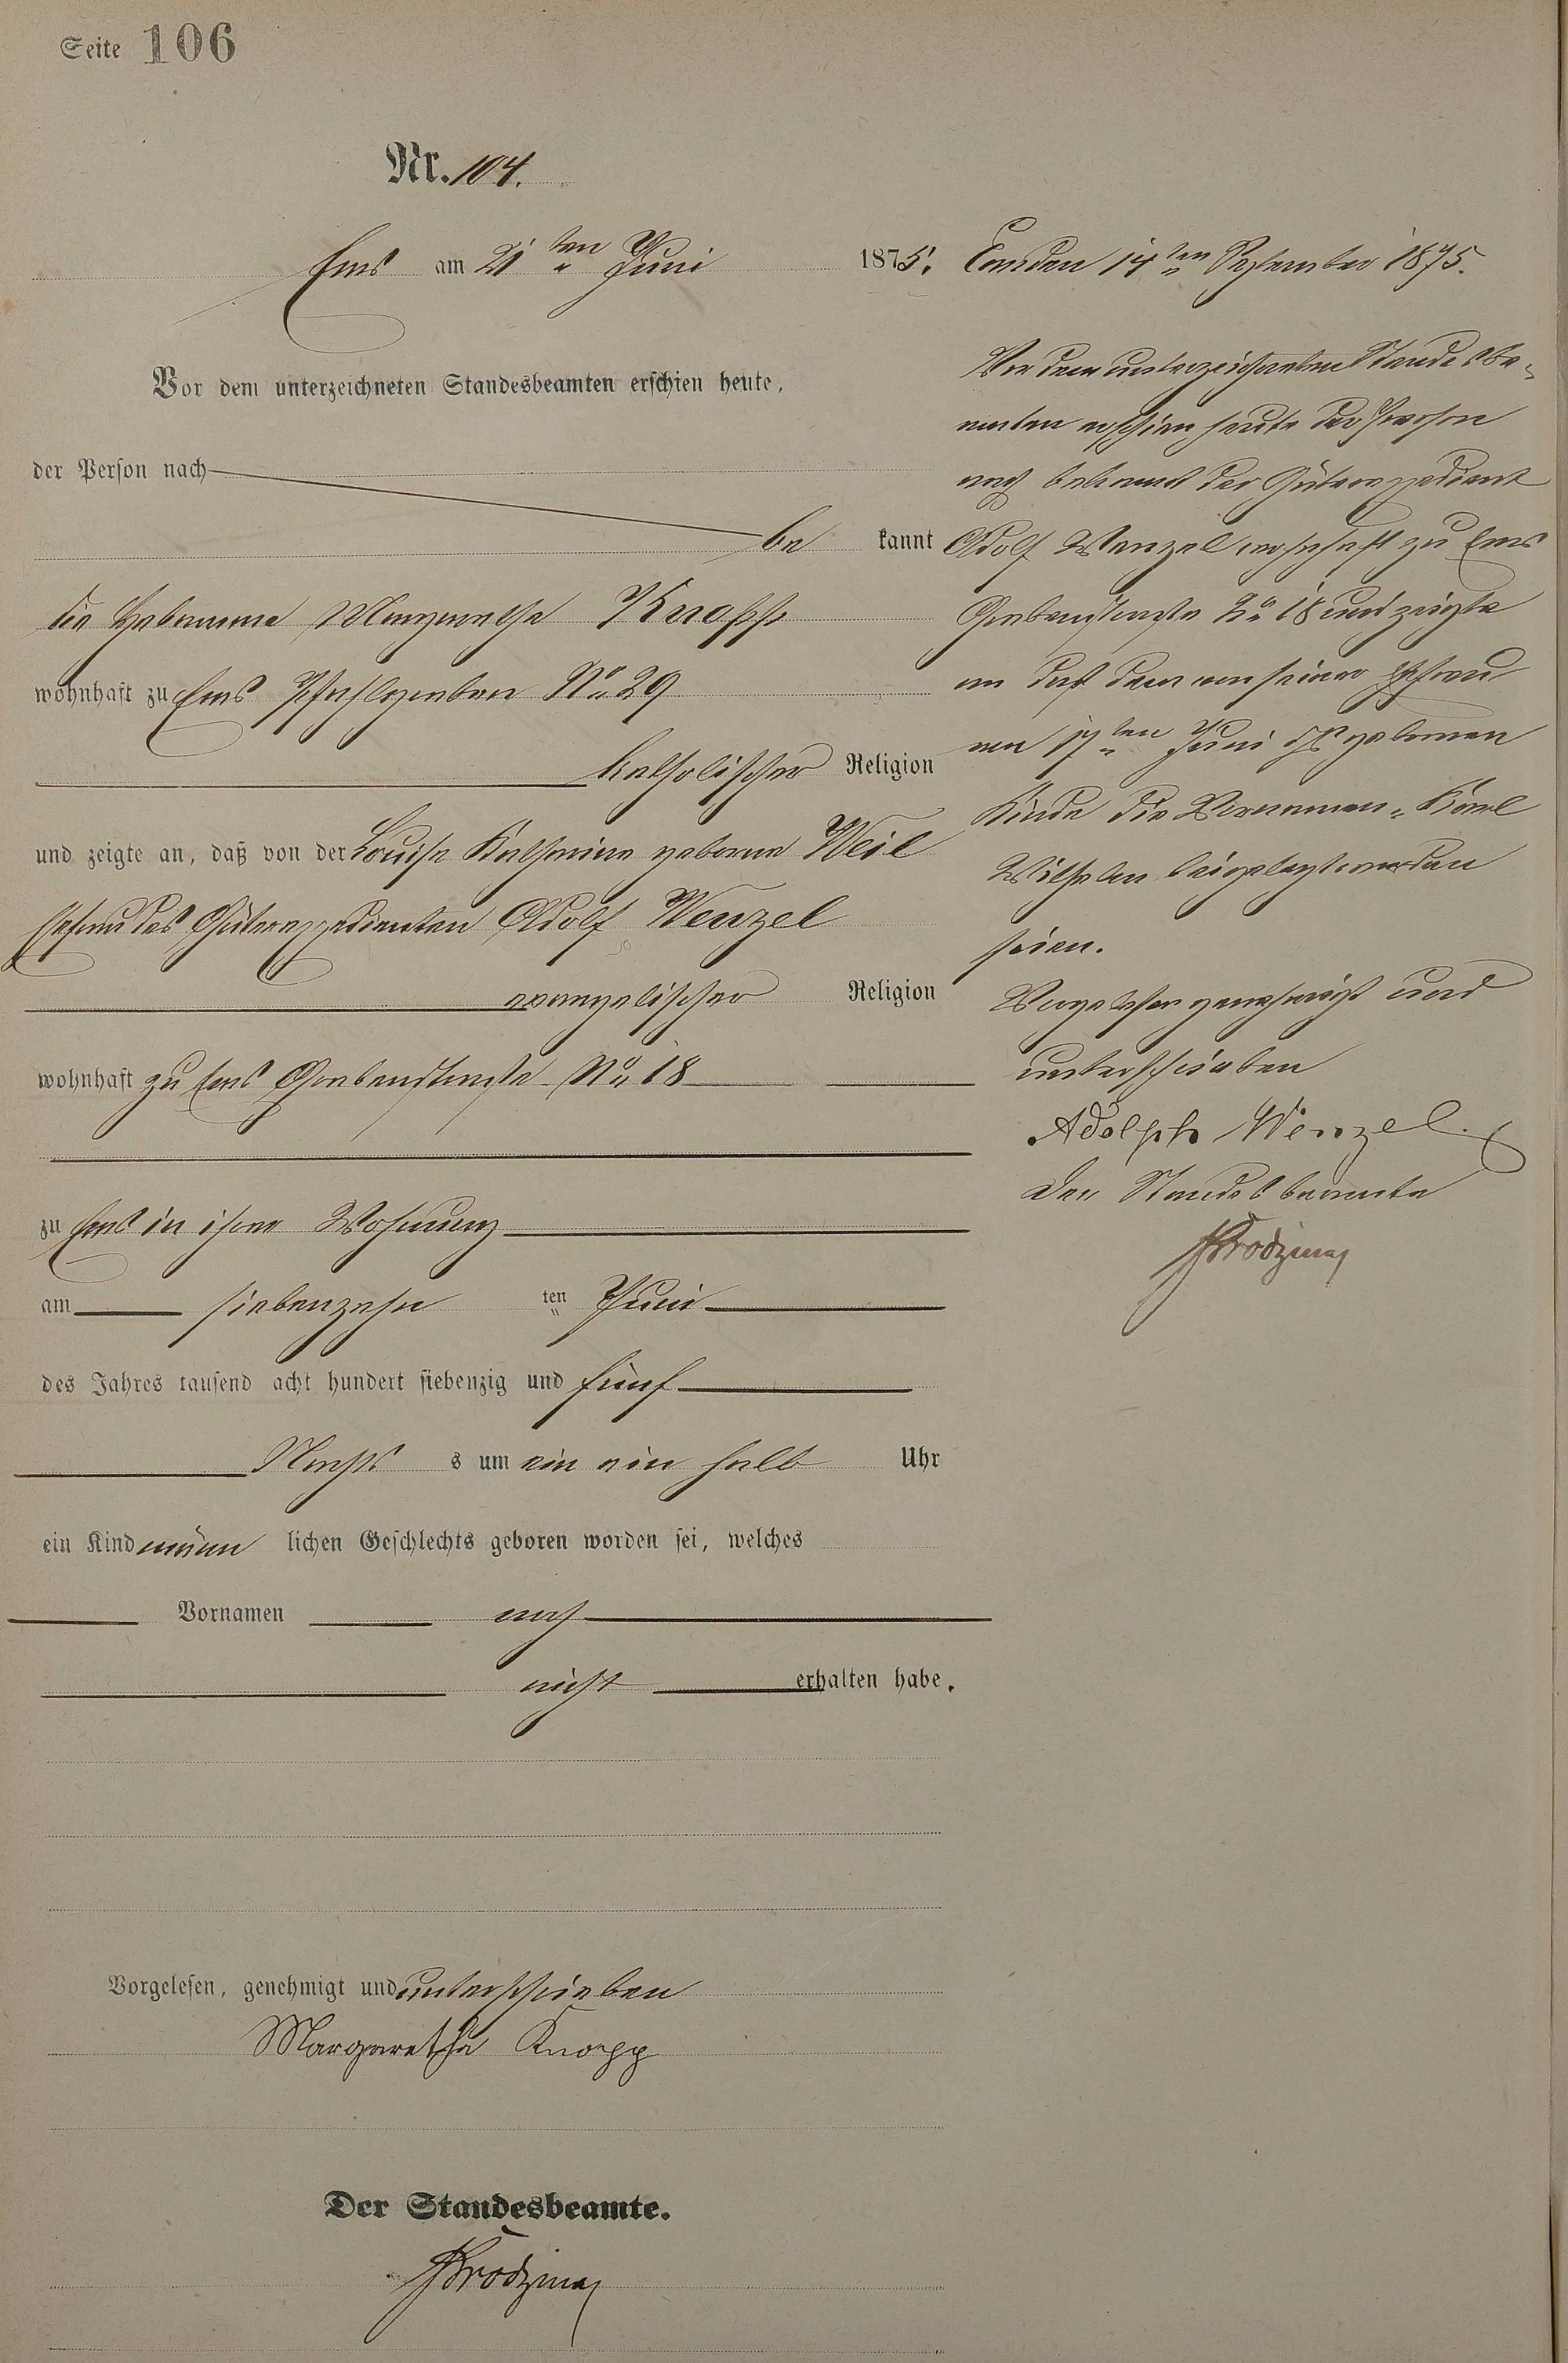 Seite 106
Nr. 104.
Ems am 21ten Juni 1875.
Vor dem unterzeichneten Standesbeamten erschien heute,
der Person nach
be kannt
die Hebamme Margarethe Knopp
wohnhaft zu Ems Pfahlgraben No 29
katholischer Religion
und zeigte an, daß von der Louise Katharine geborne Weil
Ehefrau des Güterexpedienten Adolf Wenzel
evangelischer Religion
wohnhaft zu Ems Grabenstraße No 18
zu Ems in ihrer Wohnung
am siebenzehn ten Juni
des Jahres tausend acht hundert siebenzig und fünf
Nachts s um ein ein halb Uhr
ein Kind männ lichen Geschlechts geboren worden sei, welches
Vornamen noch
nicht erhalten habe.
Vorgelesen, genehmigt und unterschrieben
Margaretha Knopp
Der Standesbeamte.
Emsden 14ten September 1875.
Vor dem unterzeichneten Standesbe-
amten erschien heute der Person
nach bekannt der Güterexpedient
Adolf Wenzel wohnhaft zu Ems
Grabenstraße No 18 und zeigte
an daß dem von seiner Ehefrau
am 17ten Juni geborenen
Kinde die Vornamen Karl
Wilhelm beigelegt worden
seien.
Vorgelesen genehmigt und
unterschrieben
Adolph Wenzel.
Der Standesbeamte